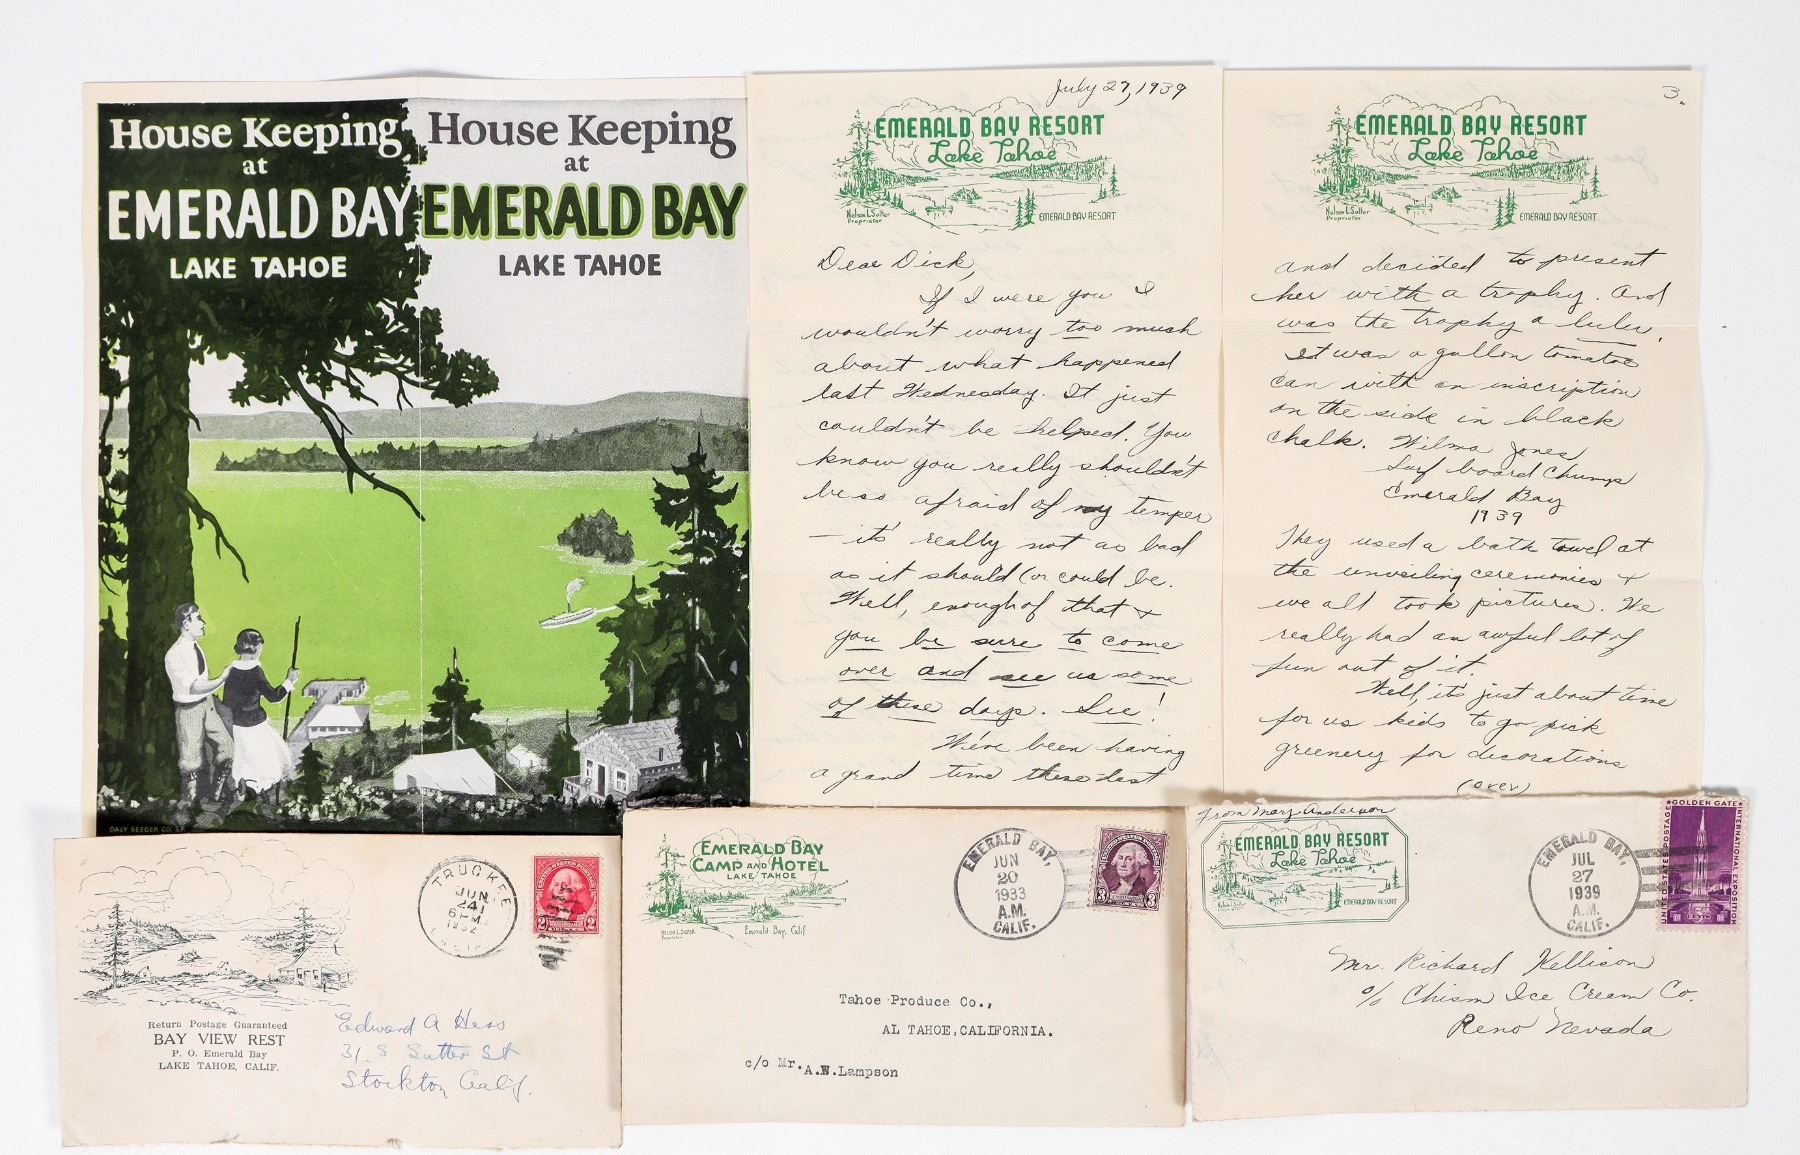 House Keeping
at
EMERALD BAY
LAKE TAHOE
House Keeping
at
EMERALD BAY
LAKE TAHOE
DALY SEEGER CO. S.F.
July 27, 1939
EMERALD BAY RESORT
Lake Tahoe
Nelson L Salter
Proprietor
EMERALD BAY RESORT
Dear Dick,
If I were you I
wouldn't worry too much
about what happened
last Wednesday. It just
couldn't be helped. You
know you really shouldn't
be so afraid of my temper
- it's really not as bad
as it should (or could be.
Well, enough of that +
you be sure to come
over and see us some
of these days. See!
We've been having
a grand time these last
3.
EMERALD BAY RESORT
Lake Tahoe
Nelson L Salter
Proprietor
EMERALD BAY RESORT
and decided to present
her with a trophy. And
was the trophy a lulu.
It was a gallon tomatoe
can with an inscription
on the side in black
chalk. Wilma Jones
Surf board Chump
Emerald Bay
1939
They used a bath towel at
the unveiling ceremonies +
we all took pictures. We
really had an awful lot of
fun out of it.
Well, it's just about time
for us kids to go pick
greenery for decorations
(over)
TRUCKEE
JUN
24
6 PM
1932
CALIF.
UNITED STATES POSTAGE
2 2
Return Postage Guaranteed
BAY VIEW REST
P. O. Emerald Bay
LAKE TAHOE, CALIF.
Edward A Hess
31. S Sutter St
Stockton Calif.
EMERALD BAY
CAMP AND HOTEL
LAKE TAHOE
Nelson L. Salter
Proprietor
Emerald Bay, Calif
EMERALD BAY
JUN
20
1933
A.M.
CALIF.
3 3
Tahoe Produce Co.,
AL TAHOE, CALIFORNIA.
c/o Mr. A.W. Lampson
From Mary Anderson
EMERALD BAY RESORT
Lake Tahoe
EMERALD BAY RESORT
EMERALD BAY,
JUL
27
1939
A.M.
CALIF.
GOLDEN GATE
INTERNATIONAL EXPOSITION
UNITED STATES POSTAGE
3¢
Mr. Richard Kellison
c/o Chism Ice Cream Co.
Reno Nevada